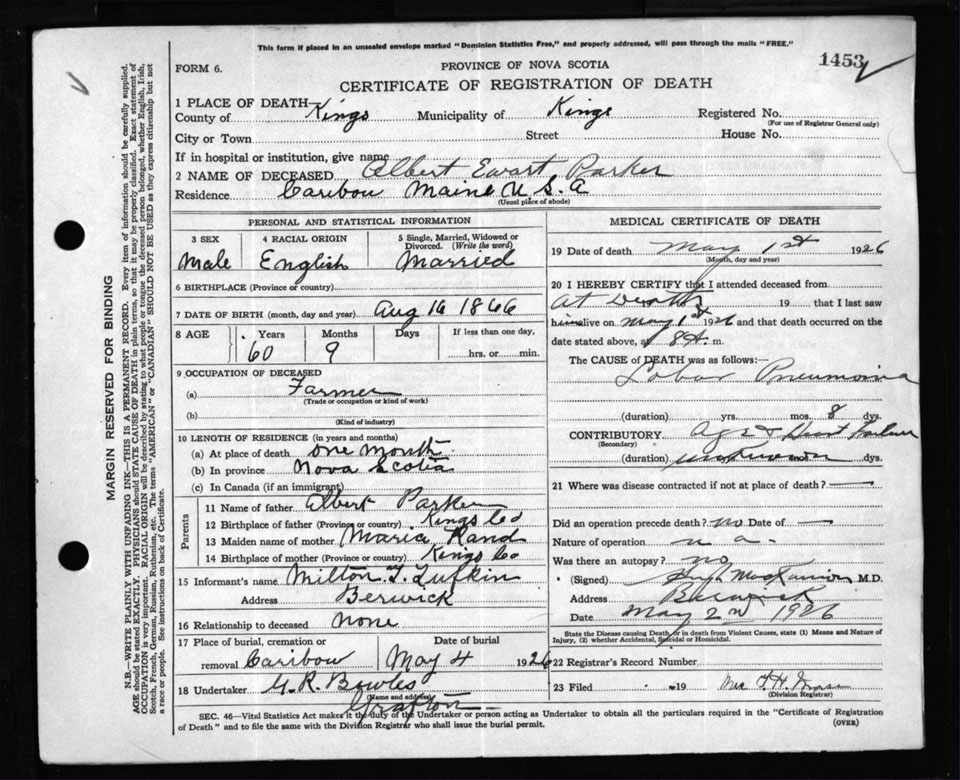 This form if placed in an unsealed envelope marked "Dominion Statistics Free," and properly addressed, will pass through the mails "FREE."
FORM 6.
PROVINCE OF NOVA SCOTIA
1453
CERTIFICATE OF REGISTRATION OF DEATH
1 PLACE OF DEATH—
County of Kings Municipality of Kings Registered No.
(For use of Registrar General only)
City or Town Street House No.
If in hospital or institution, give name
2 NAME OF DECEASED Albert Ewart Parker
Residence Caribou Maine U.S.A
(Usual place of abode)
PERSONAL AND STATISTICAL INFORMATION
3 SEX Male
4 RACIAL ORIGIN English
5 Single, Married, Widowed or Divorced. (Write the word) Married
6 BIRTHPLACE (Province or country)
7 DATE OF BIRTH (month, day and year) Aug 16 1866
8 AGE Years 60 Months 9 Days If less than one day, hrs. or min.
9 OCCUPATION OF DECEASED
(a) Farmer
(Trade or occupation or kind of work)
(b)
(Kind of industry)
10 LENGTH OF RESIDENCE (in years and months)
(a) At place of death one month
(b) In province Nova Scotia
(c) In Canada (if an immigrant)
Parents
11 Name of father Albert Parker
12 Birthplace of father (Province or country) Kings Co
13 Maiden name of mother Maria Rand
14 Birthplace of mother (Province or country) Kings Co
15 Informant's name Milton T. Lufkin
Address Berwick
16 Relationship to deceased None
17 Place of burial, cremation or removal Caribou
Date of burial May 4 1926
18 Undertaker G. R. Bowles
(Name and address)
Grafton
MEDICAL CERTIFICATE OF DEATH
19 Date of death May 1st 1926
(Month, day and year)
20 I HEREBY CERTIFY that I attended deceased from
At Death 19 that I last saw
him alive on May 1st 1926 and that death occurred on the
date stated above, at 8 A. m.
The CAUSE of DEATH was as follows:—
Lobar Pneumonia
(duration) yrs. mos. 8 dys.
CONTRIBUTORY Age & Heart Failure
(Secondary)
(duration) unknown mos. dys.
21 Where was disease contracted if not at place of death? —
Did an operation precede death? no Date of —
Nature of operation n a -
Was there an autopsy? no
(Signed) Hugh M.D.
Address Berwick
Date May 2nd 1926
State the Disease causing Death, or in death from Violent Causes, state (1) Means and Nature of Injury, (2) whether Accidental, Suicidal or Homicidal.
22 Registrar's Record Number
23 Filed 19 Mrs T. H.
(Division Registrar)
SEC. 46—Vital Statistics Act makes it the duty of the Undertaker or person acting as Undertaker to obtain all the particulars required in the "Certificate of Registration
of Death" and to file the same with the Division Registrar who shall issue the burial permit.
(OVER)
MARGIN RESERVED FOR BINDING
N.B.—WRITE PLAINLY WITH UNFADING INK—THIS IS A PERMANENT RECORD. Every item of information should be carefully supplied.
AGE should be stated EXACTLY. PHYSICIANS should STATE CAUSE OF DEATH in plain terms, so that it may be properly classified. Exact statement of
OCCUPATION is very important. RACIAL ORIGIN will be described by stating to what people or tongue the deceased person belonged, whether English, Irish,
Scotch, French, German, Russian, Ruthenian, etc. The terms "AMERICAN" or "CANADIAN" SHOULD NOT BE USED as they express citizenship but not
a race or people. See instructions on back of Certificate.